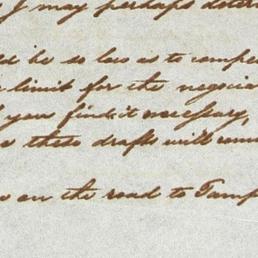 I may perhaps deter
be so low as to compe
limit for the negocia
you find it necessary,
these drafts will com
on the road to Tamp